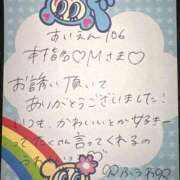 あいえん 106
本指名♡Mさま♡
お誘い頂いて
ありがとうございました!
いつも、かわいいとか好きー
ってたくさん言ってくれるの